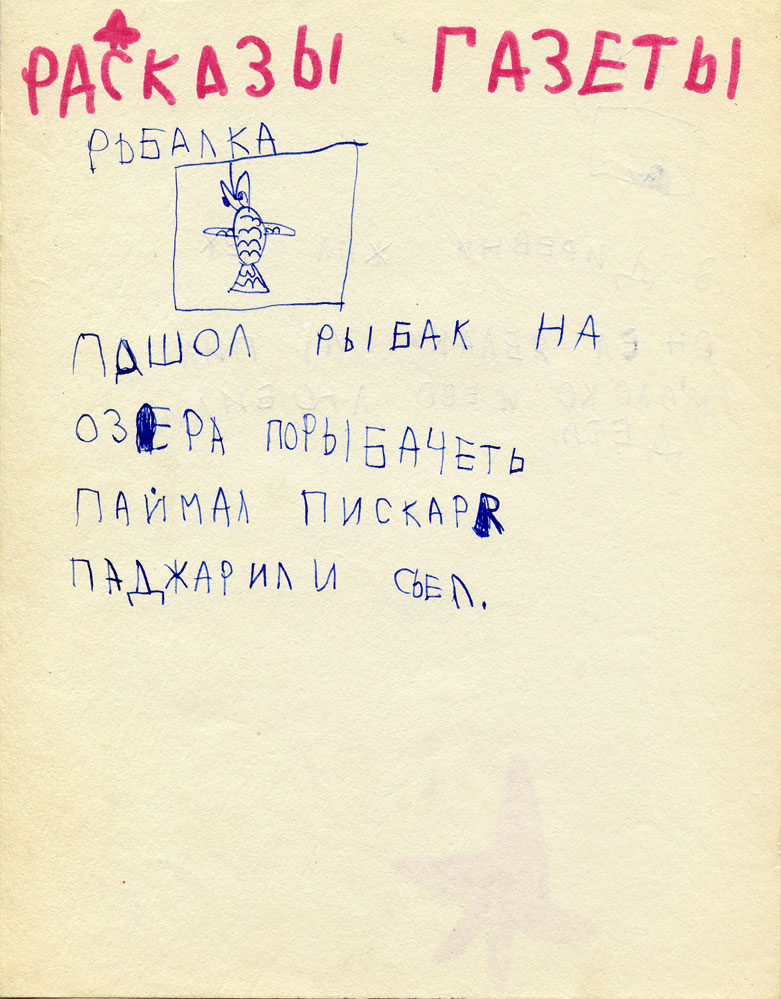 РАСКАЗЫ ГАЗЕТЫ
РЫБАЛКА
ПАШОЛ РЫБАК НА
ОЗЕРА ПОРЫБАЧЕТЬ
ПАЙМАЛ ПИСКАРЯ
ПАДЖАРИЛ И СЬЕЛ.